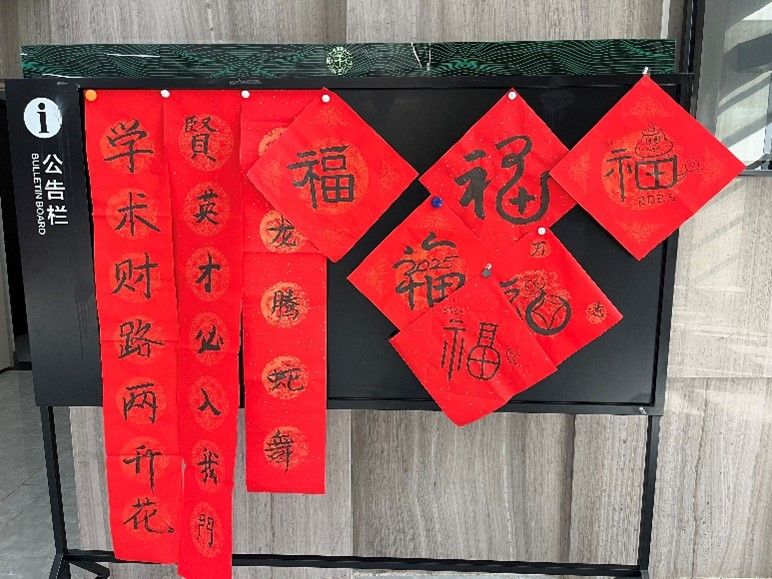 公告栏
BULLETIN BOARD
学术财路两开花
賢英才必入我門
龙腾蛇舞
福
福
福
2025
福
2025
万
福